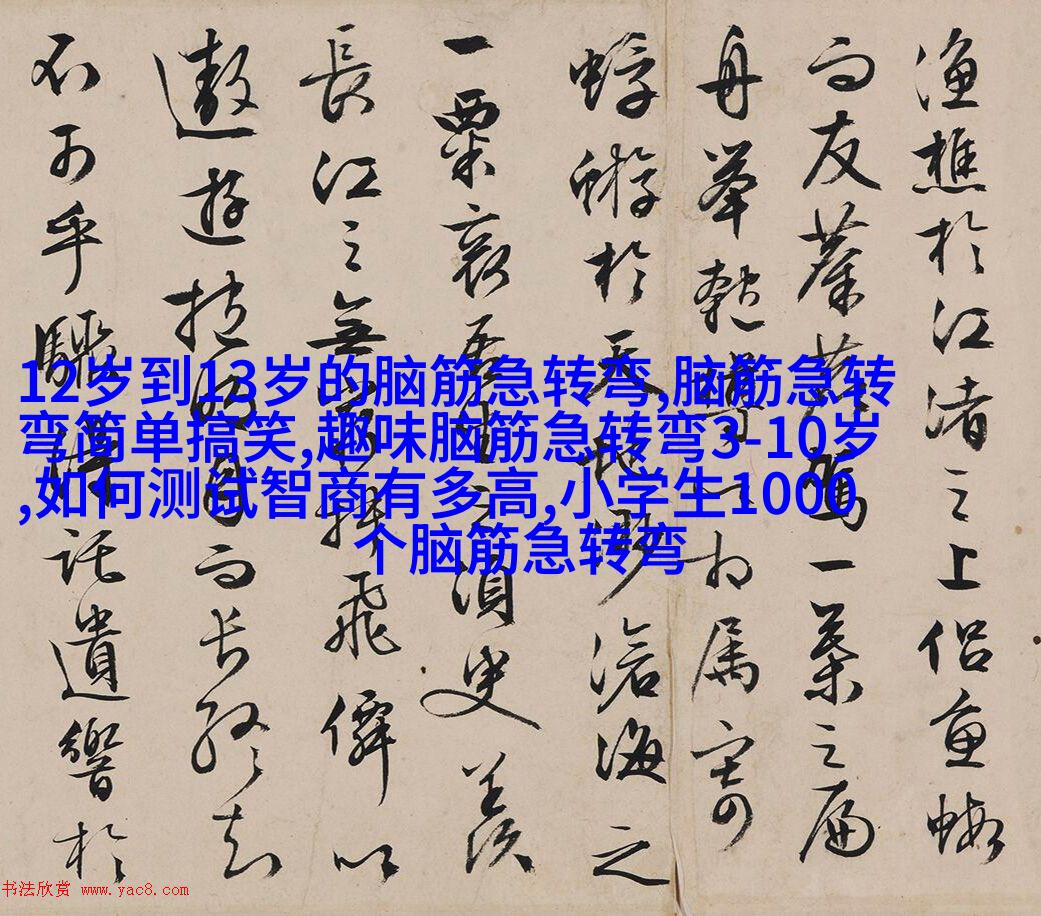 漁樵於江渚之上侣魚蝦
而友麋鹿駕一葉之扁
舟舉匏尊以相属寄
蜉蝣於天地渺滄海之
一粟哀吾生之須臾羨
長江之無窮挾飛僊以
遨遊抱明月而長終知
不可乎驟得託遺響於
12岁到13岁的脑筋急转弯,脑筋急转
弯简单搞笑,趣味脑筋急转弯3-10岁
,如何测试智商有多高,小学生1000
个脑筋急转弯
书法欣赏 www.yac8.com